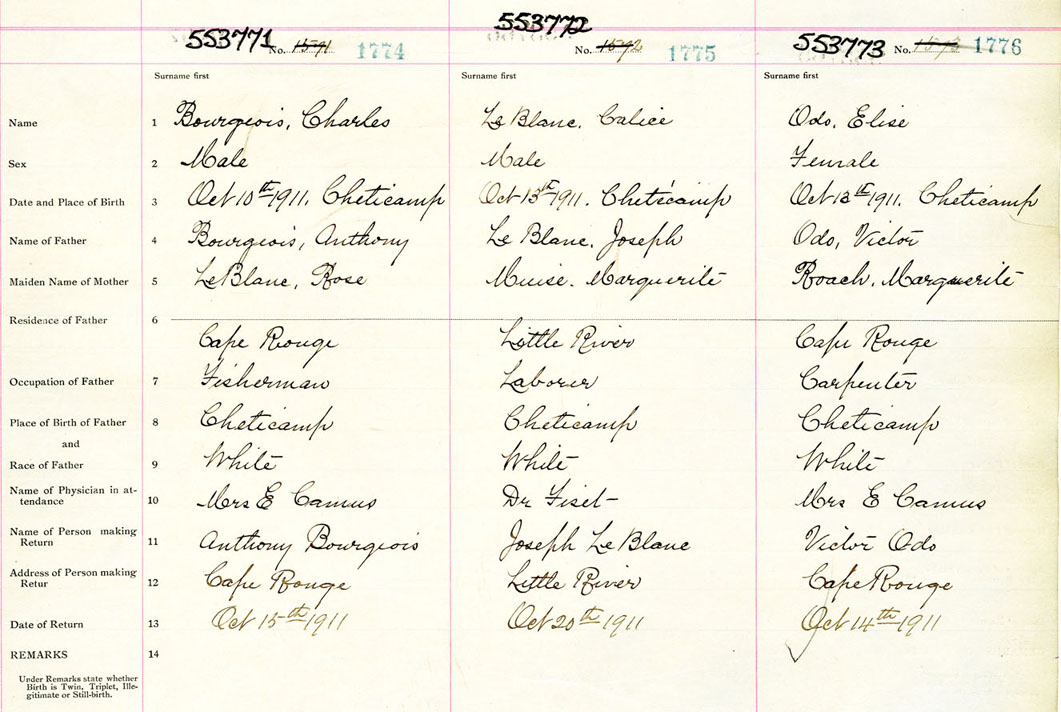 553771 No. 1591 1774 553772 No. 1592 1775 553773 No. 1593 1776
Surname first Surname first Surname first
Name 1 Bourgeois, Charles Le Blanc, Calice Odo, Elise
Sex 2 Male Male Female
Date and Place of Birth 3 Oct 10th 1911, Cheticamp Oct 13th 1911. Cheticamp Oct 12th 1911, Cheticamp
Name of Father 4 Bourgeois, Anthony Le Blanc, Joseph Odo, Victor
Maiden Name of Mother 5 LeBlanc, Rose Muise. Marguerite Roach, Marguerite
Residence of Father 6
Cape Rouge Little River Cape Rouge
Occupation of Father 7 Fisherman Laborer Carpenter
Place of Birth of Father 8 Cheticamp Cheticamp Cheticamp
and
Race of Father 9 White White White
Name of Physician in at-
tendance 10 Mrs E Camus Dr Fiset Mrs E Camus
Name of Person making
Return 11 Anthony Bourgeois Joseph Le Blanc Victor Odo
Address of Person making
Retur 12 Cape Rouge Little River Cape Rouge
Date of Return 13 Oct 15th 1911 Oct 20th 1911 Oct 14th 1911
REMARKS 14
Under Remarks state whether
Birth is Twin, Triplet, Ille-
gitimate or Still-birth.